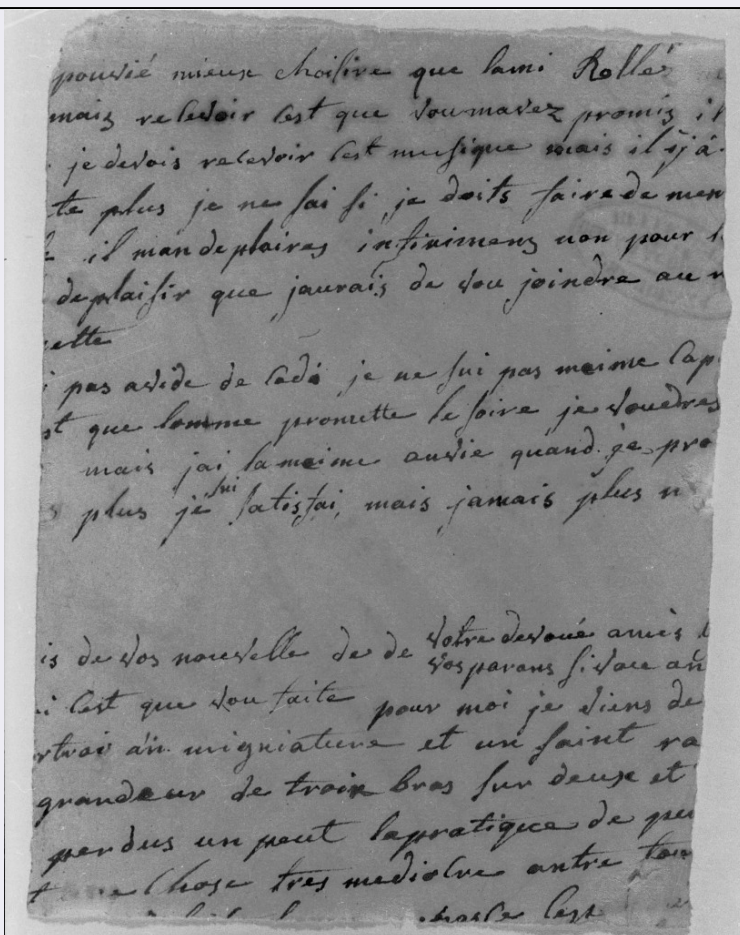 pouvié mieux choisire que lami Rollé
mais recevoir cest que voumavez promis il
je devois recevoir cest musique mais il ÿ já
te plus je ne sai si je doits faire de mem
il man deplaires infiniment non pour l
deplaisir que jaurais de vou joindre au
cette
pas avide de cado je ne sui pas meime cap
que lomme promette le foire je voudres
mais jai la meime anvie quand je pro
plus je sui satisfai, mais jamais plus n
is de vos nouvelle de de votre devoué amis
vos parans si vou an
i cest que vou faite pour moi je viens de
rtrai an migniature et un saint ra
grandeur de troix bras sur deuse et
perdus un peut lapratique de pu
chose tres mediocre antre tou
cest